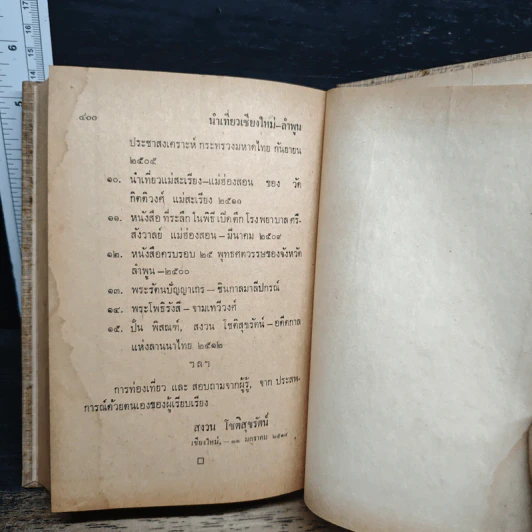 ๔๐๐ นำเที่ยวเชียงใหม่–ลำพูน
ประชาสงเคราะห์ กระทรวงมหาดไทย กันยายน
๒๕๐๕
๑๐. นำเที่ยวแม่สะเรียง–แม่ฮ่องสอน ของ วัด
กิตติวงศ์ แม่สะเรียง ๒๕๑๑
๑๑. หนังสือ ที่ระลึก ในพิธี เปิดตึก โรงพยาบาล ศรี-
สังวาลย์ แม่ฮ่องสอน – มีนาคม ๒๕๐๙
๑๒. หนังสือครบรอบ ๒๕ พุทธศตวรรษของจังหวัด
ลำพูน – ๒๕๐๐
๑๓. พระรัตนปัญญาเถร – ชินกาลมาลีปกรณ์
๑๔. พระโพธิรังสี – จามเทวีวงศ์
๑๕. ปัน พิสณฑ์, สงวน โชติสุขรัตน์ – อดีตกาล
แห่งลานนาไทย ๒๕๑๒
ฯลฯ
การท่องเที่ยว และ สอบถามจากผู้รู้, จาก ประสพ-
การณ์ด้วยตนเองของผู้เรียบเรียง
สงวน โชติสุขรัตน์
เชียงใหม่, – ๑๑ มกราคม